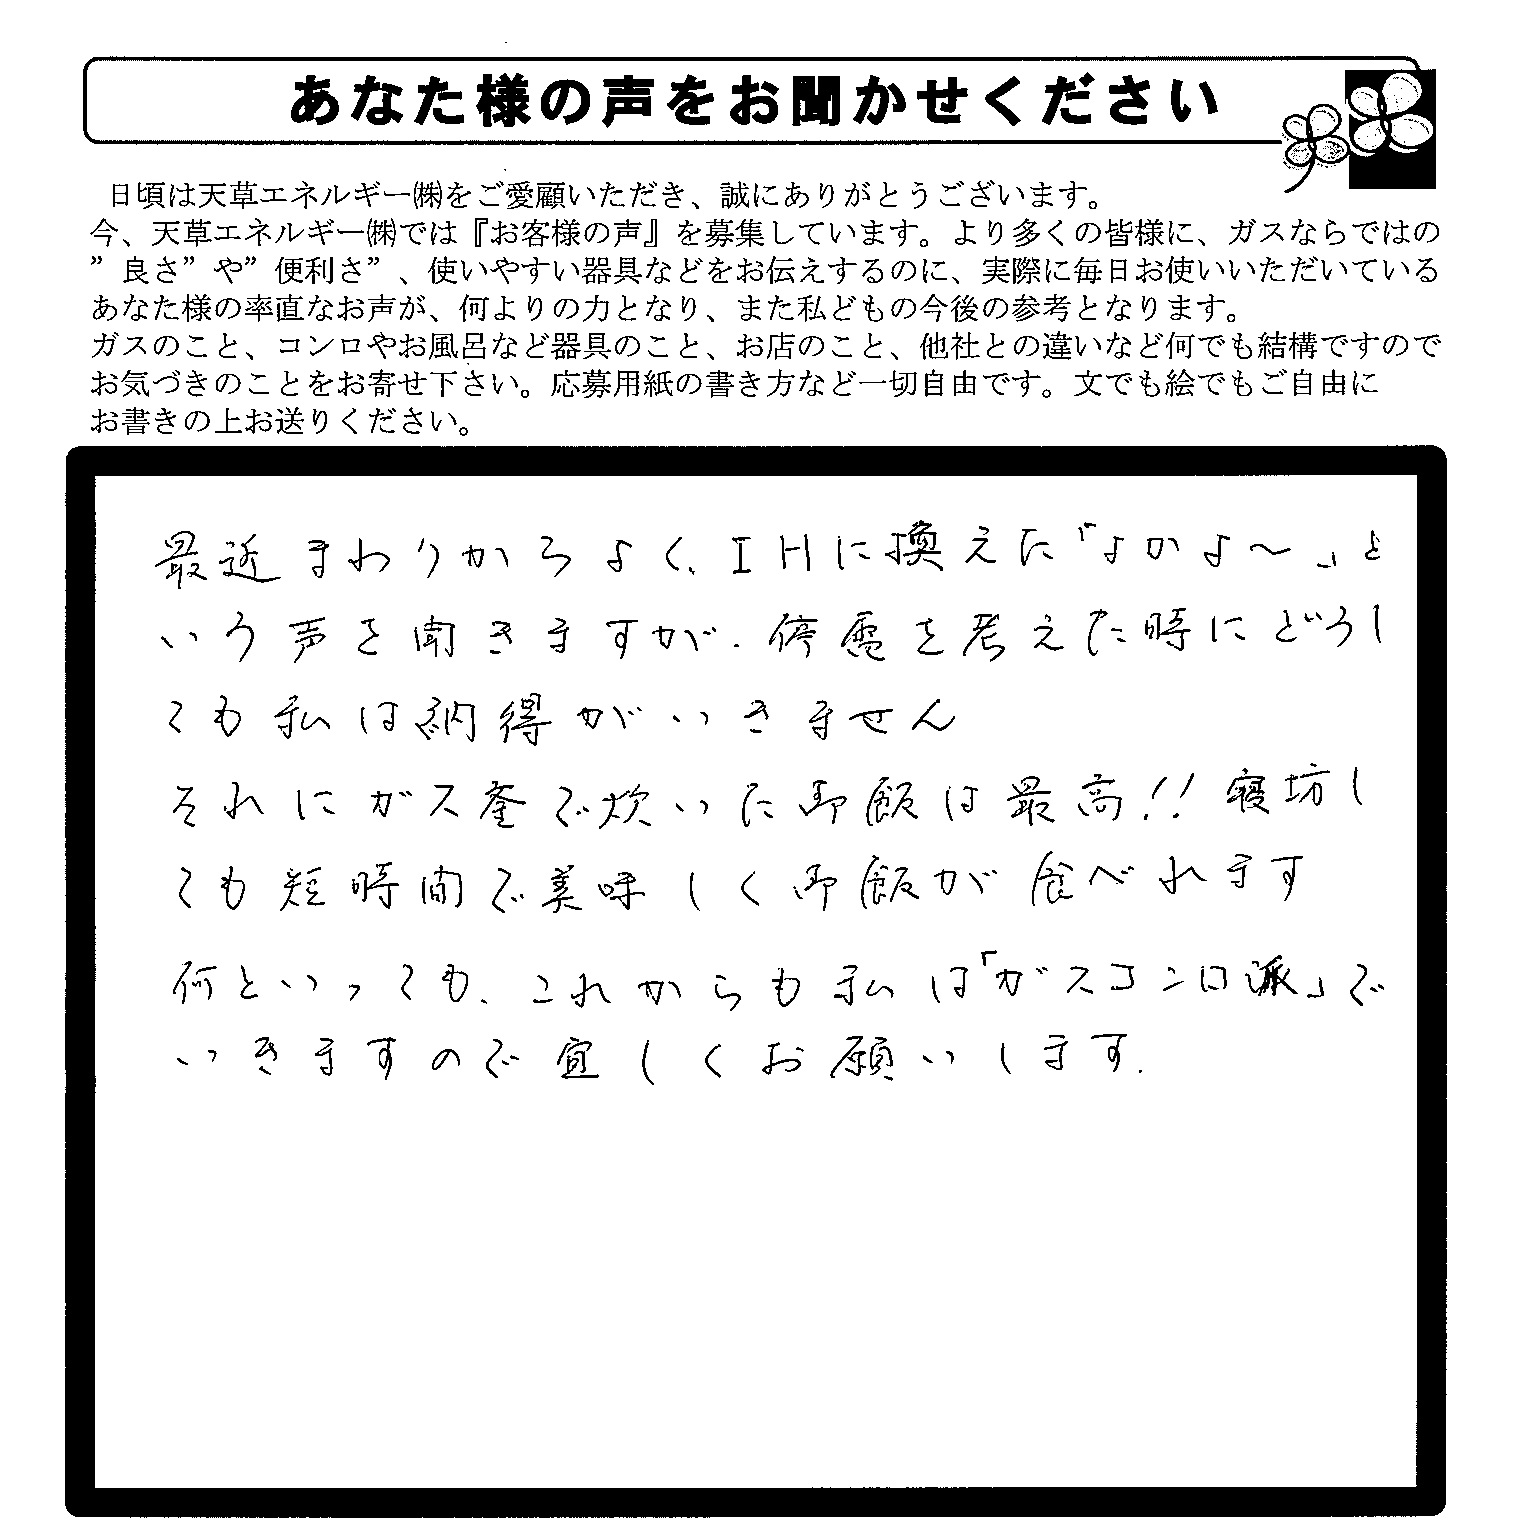 あなた様の声をお聞かせください
日頃は天草エネルギー㈱をご愛顧いただき、誠にありがとうございます。
今、天草エネルギー㈱では『お客様の声』を募集しています。より多くの皆様に、ガスならではの
”良さ”や”便利さ”、使いやすい器具などをお伝えするのに、実際に毎日お使いいただいている
あなた様の率直なお声が、何よりの力となり、また私どもの今後の参考となります。
ガスのこと、コンロやお風呂など器具のこと、お店のこと、他社との違いなど何でも結構ですので
お気づきのことをお寄せ下さい。応募用紙の書き方など一切自由です。文でも絵でもご自由に
お書きの上お送りください。
最近まわりからよく、IHに換えた「よかよ～」と
いう声を聞きますが、停電を考えた時にどうし
ても私は納得がいきません
それにガス釜で炊いた御飯は最高!! 寝坊し
ても短時間で美味しく御飯が食べれます
何といっても、これからも私は「ガスコンロ派」で
いきますので宜しくお願いします.